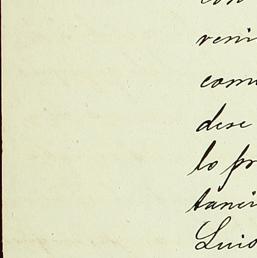 con
veni
com
dese
lo pr
tanci
Luis